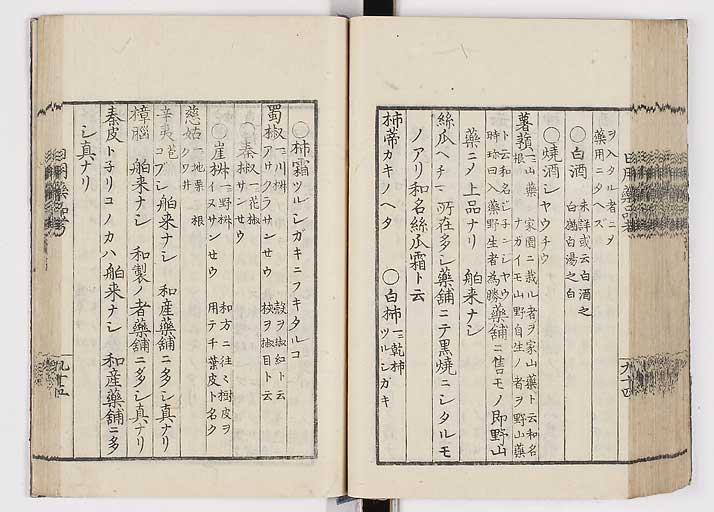 ヲ入タル者ニヲ
薬用ニタヘズ
○白酒 未詳或云白酒之
白鶴白湯之白
○焼酒シヤウチウ
薯蕷 一ニ山薬 家園ニ栽ル者ヲ家山薬ト云和名
根 ナガイモ山野自生ノ者ヲ野山薬
ト云和名ジ子ンシヤウ薬舗ニ售モノ即野山
時珍曰入薬野生者為勝
薬ニメ上品ナリ 舶来ナシ
絲瓜ヘチマ 所在多シ薬舗ニテ黒焼ニシタルモ
ノアリ和名絲瓜霜ト云
柿蒂カキノヘタ ○白柿 一ニ乾柿
ツルシガキ
○柿霜ツルシガキニフキタルコ
蜀椒 一ニ川椒 殻ヲ椒紅ト云
アサクラサンセウ 核ヲ椒目ト云
○秦椒 一ニ花椒
サンセウ
○崖椒 一ニ野椒 和方ニ往々樹皮ヲ
イヌサンセウ 用テチ葉皮ト名ク
慈姑 一ニ地栗 根
クワ井
辛夷 苞
コブシ 舶来ナシ 和産薬舗ニ多シ真ナリ
樟脳 舶来ナシ 和製ノ者薬舗ニ多シ真ナリ
秦皮ト子リコノカハ 舶来ナシ 和産薬舗ニ多
シ真ナリ
日用薬品考
九十四